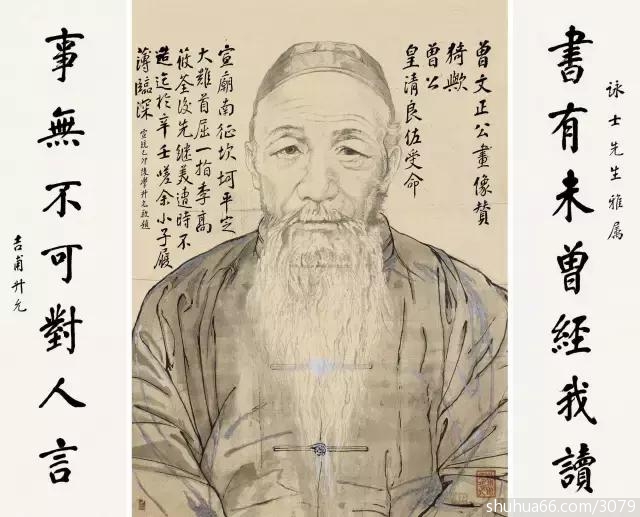 詠士先生雅属
書有未曾經我讀
曾文正公畫像贊
猗歟
曾公
皇清良佐受命
宣廟南征坎坷平定
大難首屈一指李高
筱荃後先繼美遭時不
造迄於辛壬嗟余小子履
薄臨深
宣統乙卯後學升允敬題
事無不可對人言
吉甫升允
shuhua66.com/3079